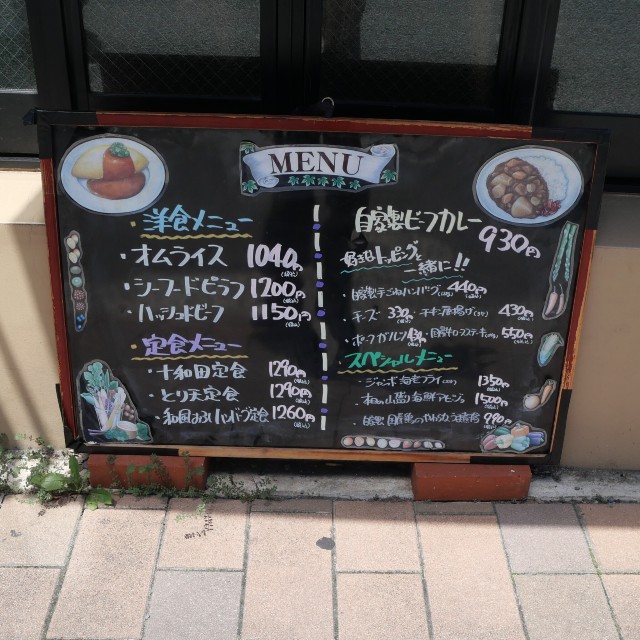 MENU
洋食メニュー
・オムライス 1040円
(税込)
・シーフードピラフ 1200円
(税込)
・ハッシュドビーフ 1150円
(税込)
定食メニュー
・十和田定食 1290円
(税込)
・とり天定食 1290円
(税込)
・和風おろしハンバーグ定食 1260円
(税込)
自家製ビーフカレー
930円
トッピングと
一緒に!!
・自家製手ごねハンバーグ 440円
・チーズ 330円
・チキン唐揚げ 430円
・ポークカツレツ
550円
スペシャルメニュー
・ジャンボ海老フライ 1350円
(税込)
1500円
(税込)
・自家製
990円
(税込)